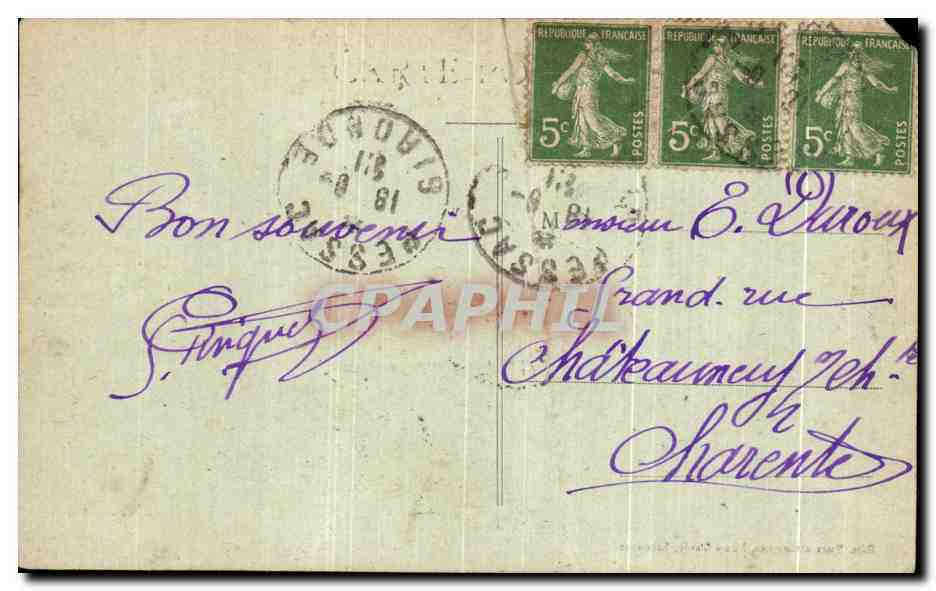 CARTE
REPUBLIQUE FRANÇAISE
5c
POSTES
REPUBLIQUE FRANÇAISE
5c
POSTES
REPUBLIQUE FRANÇAISE
5c
POSTES
PESSAC
GIRONDE
PESSAC
Bon souvenir
Monsieur E. Duroux
Grand. rue
Châteauneuf
Charente
CPAPHIL